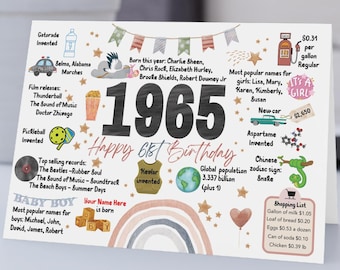 Gatorade
Invented
Born this year: Charlie Sheen,
Chris Rock, Elizabeth Hurley,
Brooke Shields, Robert Downey Jr
$0.31
per
gallon
Regular
Selma, Alabama
Marches
Most popular names for
girls: Lisa, Mary,
Karen, Kimberly,
Susan
IT'S A
GIRL
Film releases:
Thunderball
The Sound of Music
Doctor Zhivago
1965
New car
$2,650
Pickleball
Invented
Happy 61st Birthday
Aspartame
invented
Top selling records:
The Beatles -Rubber Soul
The Sound of Music – Soundtrack
The Beach Boys – Summer Days
Kevlar
invented
Global population
3.337 billion
(plus 1)
Chinese
Zodiac sign:
Snake
BABY BOY
Most popular names for
boys: Michael, John,
David, James, Robert
Your Name Here
is born
Shopping List
Gallon of milk $1.05
Loaf of bread $0.20
Eggs $0.53 a dozen
Can of soda $0.10
Chicken $0.39 lb